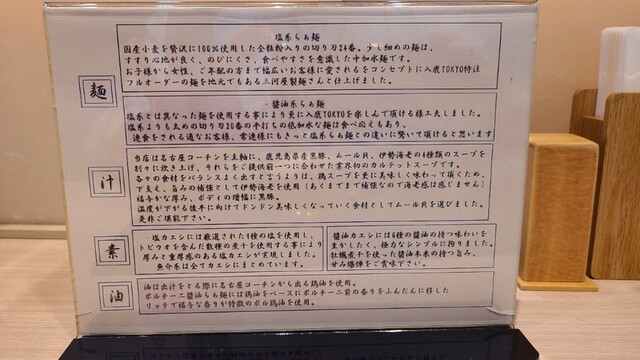 塩系らぁ麺
国産小麦を贅沢に100%使用した全粒粉入りの切り刃24番。少し細めの麺は、
すすり心地が良く、のびにくさ、食べやすさを意識した中加水麺です。
お子様から女性、ご年配の方まで幅広いお客様に愛されるをコンセプトに入鹿TOKYO特注
フルオーダーの麺を地元でもある三河屋製麺さんと仕上げました。
麺
醤油系らぁ麺
塩系とは異なった麺を使用する事により更に入鹿TOKYOを楽しんで頂ける様工夫しました。
塩系よりも太めの切り刃20番の平打ちの低加水な麺は食べ応えもあり、
連食をされる通なお客様、常連様にもきっと塩系らぁ麺との違いに驚いて頂けると思います
汁
当店は名古屋コーチンを主軸に、鹿児島県産黒豚、ムール貝、伊勢海老の4種類のスープを
別々に炊き上げ、それらをご提供前一つに合わせた世界初のカルテットスープです。
各々の食材をバランスよく出すと言うよりは、鶏スープを更に美味しく味わって頂くため、
下支え、旨みの補強として伊勢海老を使用(あくまでまで補強なので海老感は感じません)
福与かな厚み、ボディの増幅に黒豚。
温度が下がる後半に向けてドンドン美味しくなっていく食材としてムール貝を選びました。
是非ご堪能下さい。
素
塩カエシには厳選された4種の塩を使用し、
トビウオを含んだ数種の煮干を使用する事により
厚みと重厚感のある塩カエシが実現しました。
魚介系は全てカエシにまとめています。
醤油カエシには6種の醤油の持つ味わいを
生かしたく、極力なシンプルに拘りました。
牡蠣煮干を使った醤油本来の持つ旨み、
甘み爆弾をご賞味下さい。
油
油は出汁をとる際に名古屋コーチンから出る鶏油を使用。
ポルチーニ醤油らぁ麺には鶏油をベースにポルチーニ茸の香りをふんだんに移した
リッチで福与な香りが特徴のポル鶏油を使用。